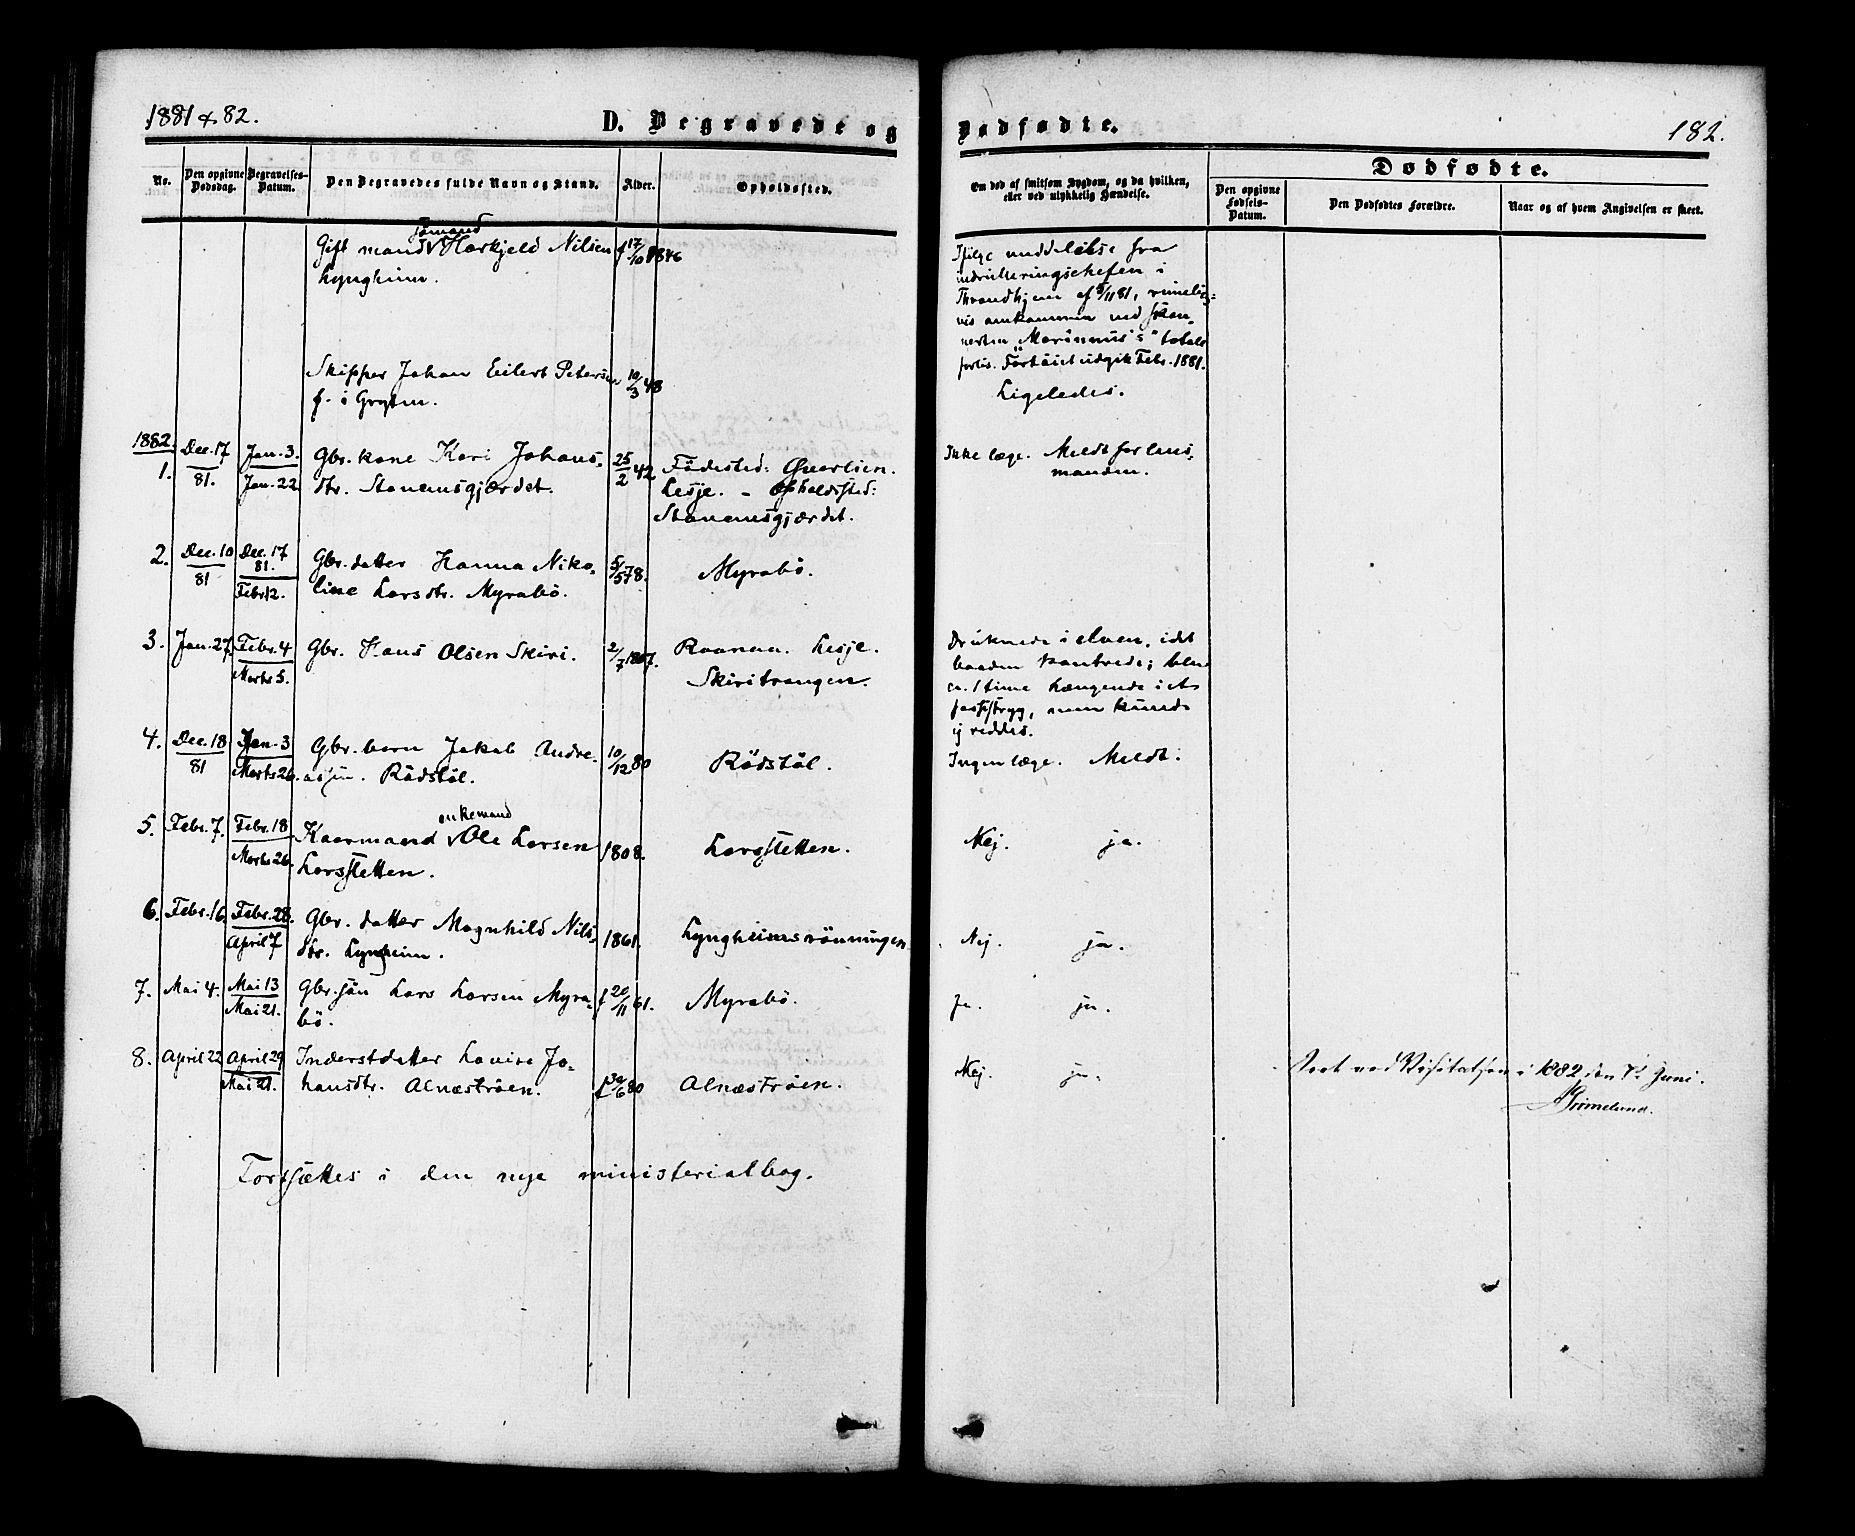 1881 & 82.
D. Begravede og Dødfødte.
182.
No.
Den opgivne Dødsdag.
Begravelses-Datum.
Den Begravedes fulde Navn og Stand.
Alder.
Opholdssted.
Om død af smitsom Sygdom, og da hvilken,
eller ved ulykkelig Hændelse.
Dødfødte.
Den opgivne Fødsels-Datum.
Den Dødfødtes Forældre.
Naar og af hvem Angivelsen er skeet.
sömand
Gift mand v Haskjeld Nilsen f 17/10 1846
Lyngheim.
Ifölge meddelelse fra
indrulleringschefen i
Throndhjem af 5/11 81, rimelig-
vis omkommen med skon-
nerten "Marinus's" totale
forlis. Fartöiet udgik Febr. 1881.
Skipper Johan Eilert Petersen 10/3 48
f. i Grytten.
Ligeledes.
1882.
1. Dec. 17 81. Jan. 3. Jan. 22 Gbr. kone Kari Johans- 25/2 42 Födested: Qverlien.
dtr. Stavemsgjærdet. Lesje. - Opholdsted:
Stavemsgjærdet.
Ikke læge. Meldt for lens-
manden.
2. Dec. 10 81 Dec. 17 81. Febr. 12. Gbr. datter Hanna Niko- 5/5 78. Myrabö.
line Larsdtr. Myrabö.
3. Jan. 27. Febr. 4 Marts 5. Gbr. Hans Olsen Skiri. 2/7 1807. Raanaa. Lesje.
Skiritrangen.
Druknede i elven, idet
baaden kantrede; blev
ca. 1 time hængende i et
fossstryg, men kunde
ej reddes.
4. Dec. 18 81 Jan. 3 Marts 26. Gbr. barn Jakob Andre- 10/12 80 Rödstöl.
assen. Rödstöl.
Ingen læge. Meldt.
enkemand
5. Febr. 7. Febr. 18 Marts 26. Kaarmand v Ole Larsen 1808. Larsstetten.
Larsstetten.
Nej. ja.
6. Febr. 16. Febr. 28. April 7 Gbr. datter Magnhild Nils- 1861. Lyngheimsrönningen.
dtr. Lyngheim.
Nej. ja.
7. Mai 4. Mai 13 Mai 21. Gbr. sön Lars Larsen Myra- f 20/11 61. Myrabö.
bö.
Ja. ja.
8. April 22 April 29 Mai 21. Inderstdatter Lovise Jo- f 30/6 80 Alnæströen.
hansdtr. Alnæströen.
Nej. ja.
Seet ved Visitatsen i 1882 den 7de Juni.
Grimelund.
Fortsættes i den nye ministerialbog.